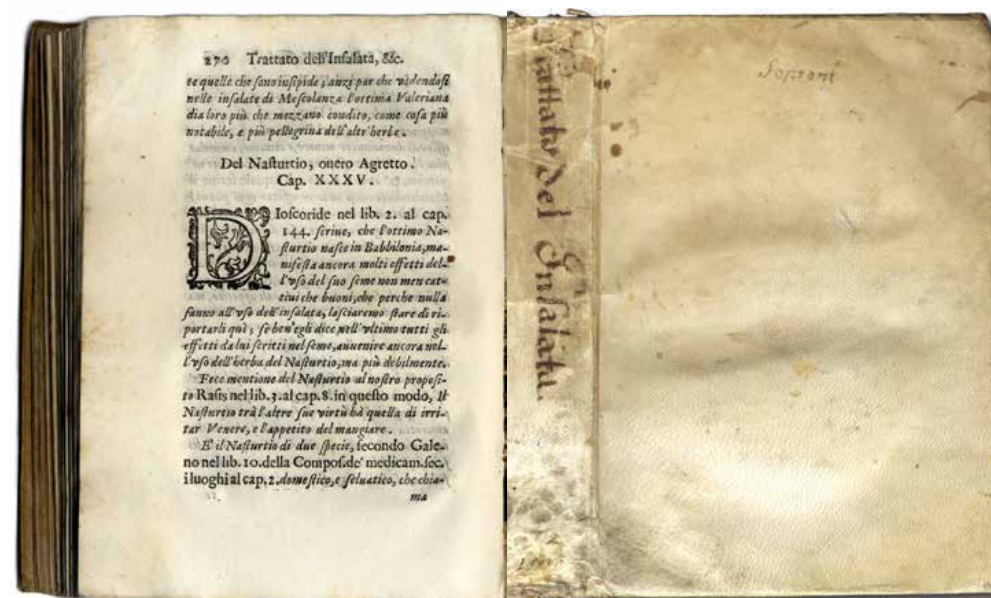 270 Trattato dell'Insalata, &c.
te quelle che sono insipide; anzi par che vedendosi
nelle insalate di Mescolanza l'ottima Valeriana
dia loro più che mezzano condito, come cosa più
notabile, e più pellegrina dell'altr'herbe.
Del Nasturtio, ouero Agretto.
Cap. XXXV.
DIoscoride nel lib. 2. al cap.
144. scriue, che l'ottimo Na-
sturtio nasce in Babbilonia, ma-
nifesta ancora molti effetti del-
l'vso del suo seme non men cat-
tiui che buoni, che perche nulla
fanno all'vso dell'insalata, lasciaremo stare di ri-
portarli quì; se ben'egli dice nell'vltimo tutti gli
effetti da lui scritti nel seme, auuenire ancora nel-
l'vso dell'herba del Nasturtio, ma più debilmente.
Fece mentione del Nasturtio al nostro proposi-
to Rasis nel lib. 3. al cap. 8. in questo modo, Il
Nasturtio trà l'altre sue virtù hà quella di irri-
tar Venere, e l'appetito del mangiare.
E' il Nasturtio di due specie, secondo Gale-
no nel lib. 10. della Compos. de' medicam. sec.
i luoghi al cap. 2. domestico, e seluatico, che chia-
ma
Trattato del Insalata.